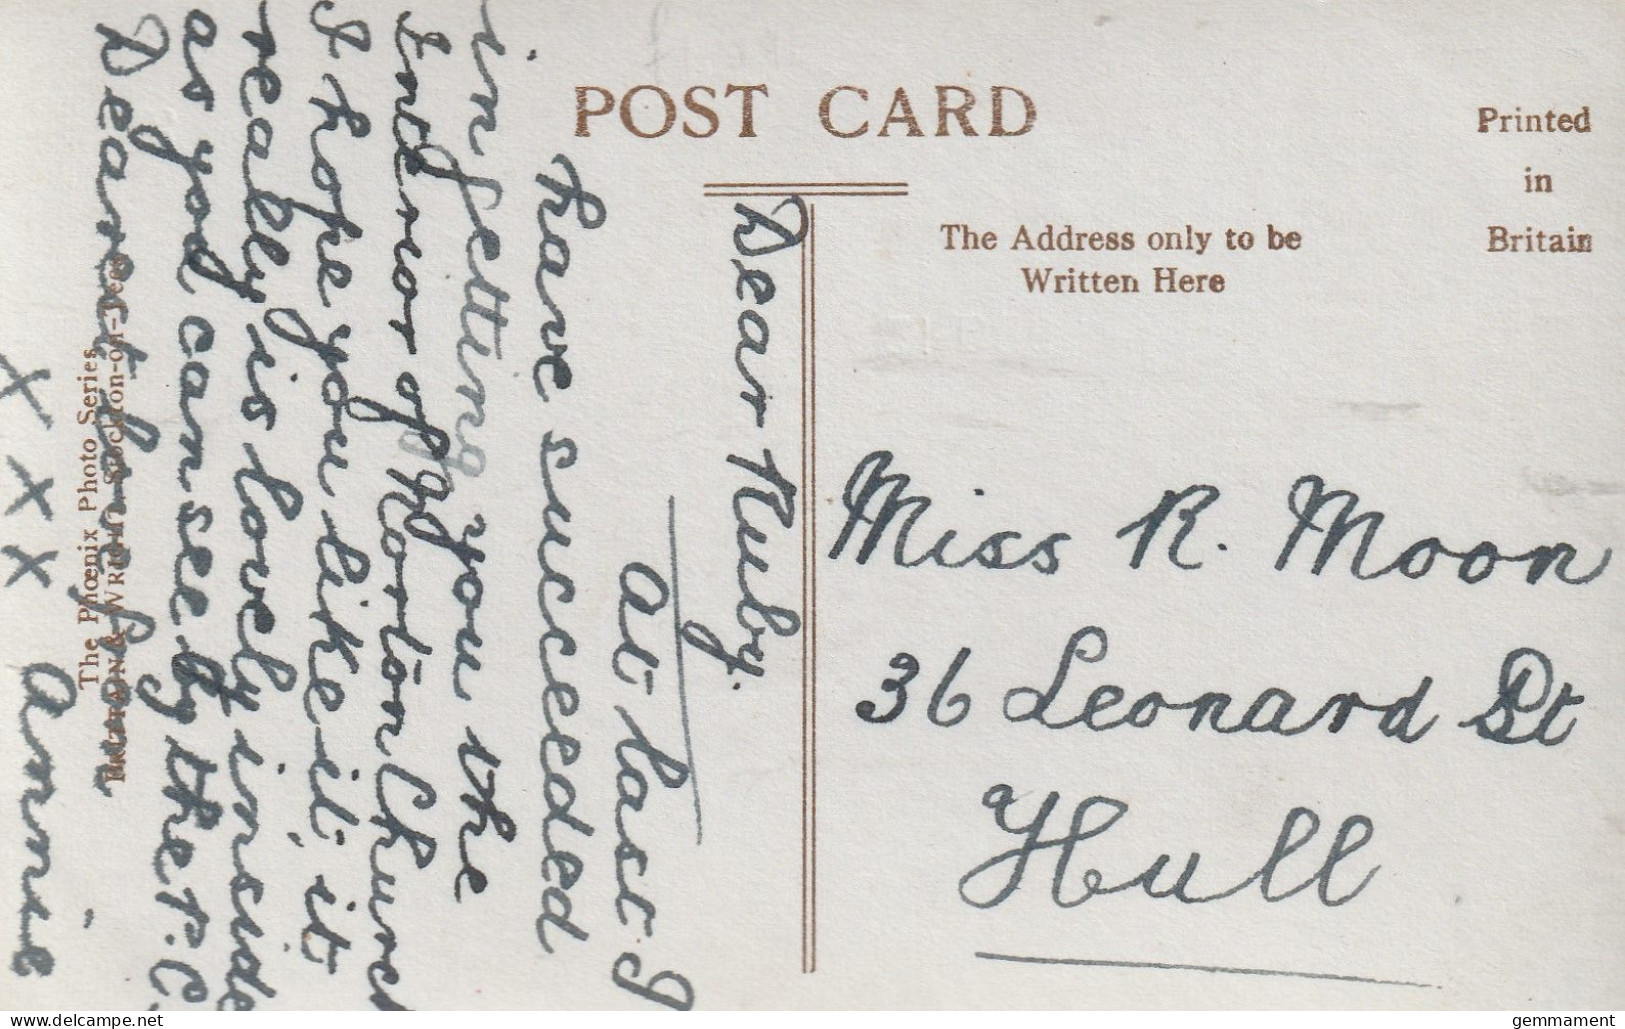 POST CARD
Printed
in
Britain
The Address only to be
Written Here
Miss R. Moon
36 Leonard St
Hull
Dear Ruby.
At last I
have succeeded
in getting you the
Interior of Norton Church
I hope you like it it
really is lovely inside
as you can see by the P.C.
Dearest love from
Annie
x x x x
The Phœnix Photo Series
& WRIGHT Stockton-on-Tees
gemmament